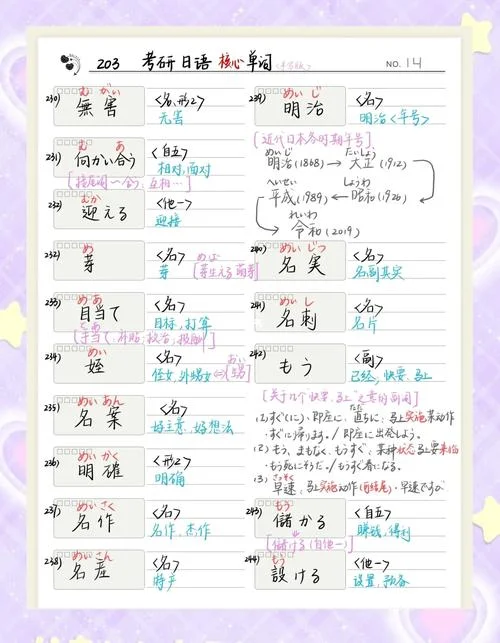 203 考研日语 核心单词 <手写版>
NO. 14
230)
むがい
無害
<名、形2>
无害
231)
む あ
向かい合う
<自五>
相对,面对
[接连词~合う:互相…]
232)
むか
迎える
<他一>
迎接
232)
め
芽
<名>
芽
めば
[芽生える 萌芽]
233)
めあ
目当て
<名>
目标,打算
てあ
[手当て:补贴,救治,报酬]
234)
めい
姪
<名>
侄女,外甥女⇔
おい
[甥]
235)
めいあん
名案
<名>
好主意、好想法
236)
めいかく
明確
<形2>
明确
237)
めいさく
名作
<名>
名作、杰作
238)
めいさん
名産
<名>
特产
239)
めいじ
明治
<名>
明治<年号>
[近代日本各时期年号]
めいじ たいしょう
明治(1868)→大正(1912)
へいせい しょうわ
平成(1989)←昭和(1926)
れいわ
令和(2019)
240)
めいじつ
名実
<名>
名副其实
241)
めいし
名刺
<名>
名片
242)
もう
<副>
已经,快要、马上
[关于几个"快要、马上"之意的副词]
(1)すぐ(に)、即座に、直ちに、:马上实施某动作
ただ
・すぐに帰ります。/即座に出発しよう。
(2)もう、まもなく、もうすぐ、:某种状态马上要来临
・もう死にそうだ。/もうすぐ春になる。
さっそく
(3)早速、:马上实施动作(直结尾)・早速ですが
243)
もう
儲かる
<自五>
赚钱,得利
もう
[儲ける(自他一)]
244)
もう
設ける
<他一>
设置,预备